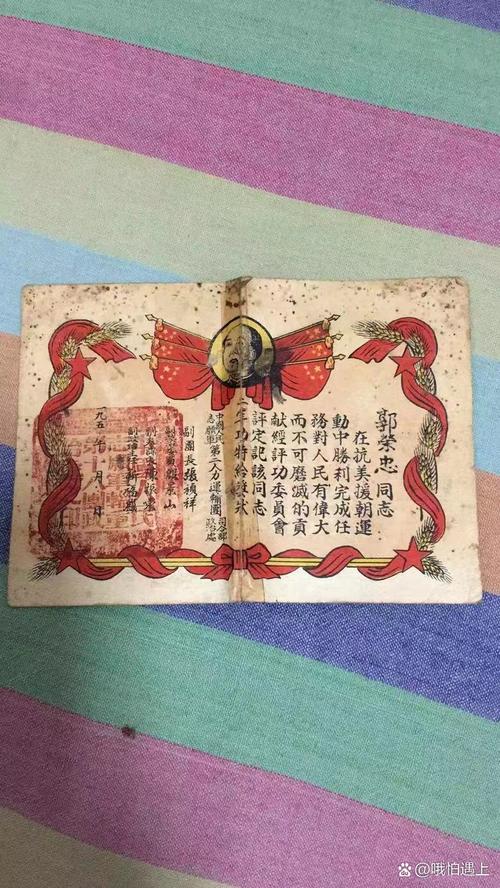 郭榮忠同志
在抗美援朝運
動中勝利完成任
務對人民有偉大
而不可磨滅的貢
獻經評功委員會
評定記該同志
功特給獎狀
中國人民志願軍第二人力運輸團司令部政治處
副團長張禎祥
景山
九五年月日
@哦怕遇上